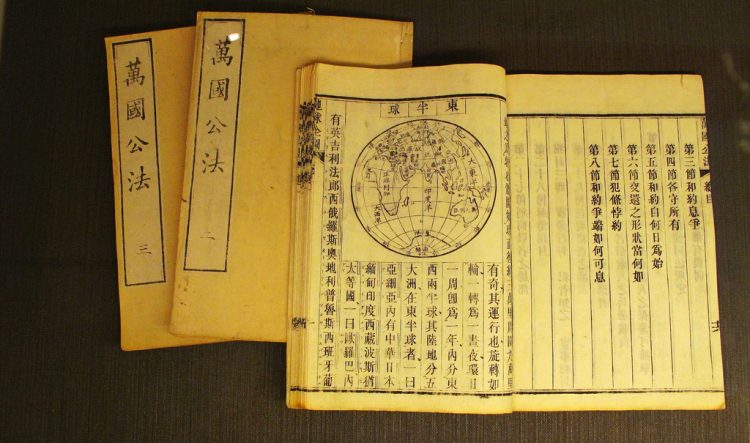 萬國公法
三
萬國公法
二
萬國公法 卷目
第三節和約息爭
第四節各守所有
第五節和約自何日為始
第六節交還之形狀當何如
第七節犯條悖約
第八節和約爭端如何可息
東半球
印度洋
有奇其運行也旋轉如
輪一轉為一晝夜環日
一周卽為一年內分東
西兩半球其陸地分五
大洲在東半球者一曰
亞細亞內有中華日本
緬甸印度西藏波斯猶
太等國一曰歐羅巴內
有英吉利法郎西俄羅斯奧地利普魯斯西班牙葡
地球全圖